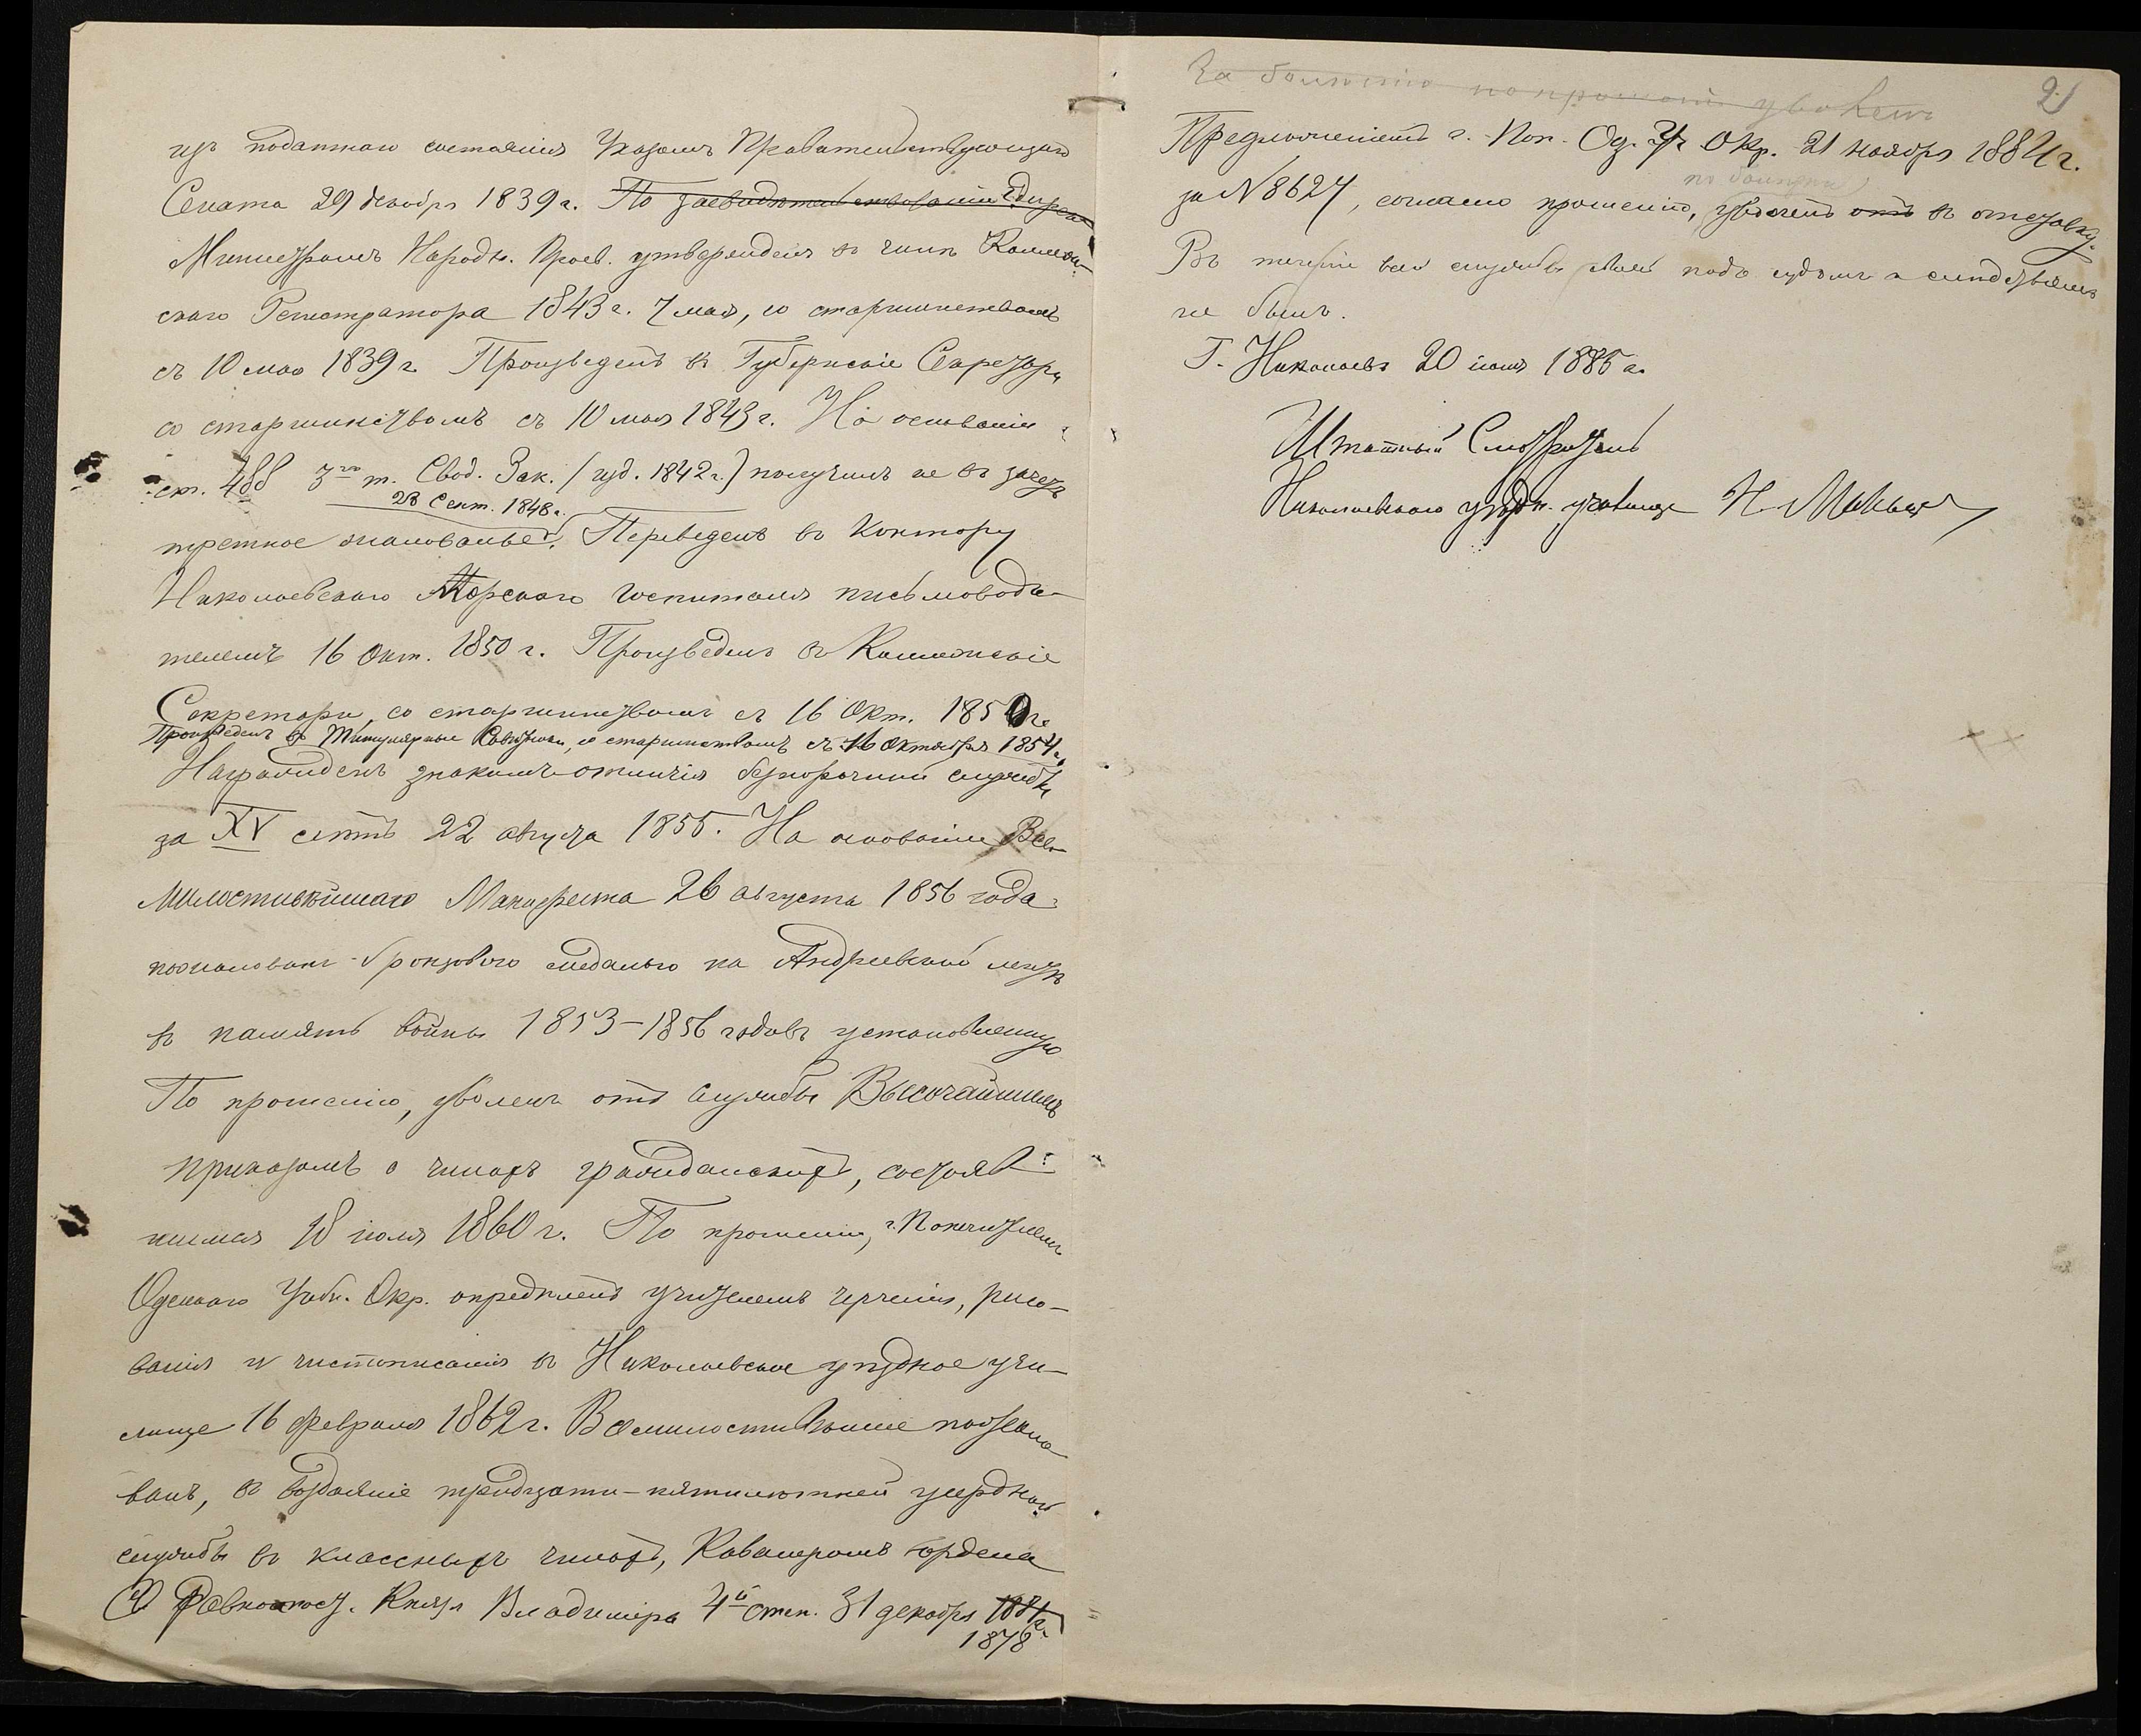 изъ податнаго состоянія Указомъ Правительствующаго
Сената 29 декабря 1839 г. По засвидѣтельствованію
Министромъ Народн. Просв. утвержденъ въ чинѣ Коллеж-
скаго Регистратора 1843 г. 7 мая, со старшинствомъ
съ 10 мая 1839 г. Произведенъ въ Губернскіе Секретари
со старшинствомъ съ 10 мая 1843 г. На основаніи
ст. 488 3го т. Свод. Зак. (изд. 1842 г.) получилъ не въ зачетъ
28 Сент. 1848 г.
третное жалованье. Переведенъ въ Контору
Николаевскаго Морскаго госпиталя письмоводи-
телемъ 16 Окт. 1850 г. Произведенъ въ Коллежскіе
Секретари, со старшинствомъ съ 16 Окт. 1850 г.
Произведенъ въ Титулярные Совѣтники, со старшинствомъ съ 16 октября 1854 г.
Награжденъ знакомъ отличія безпорочной службы
за XV лѣтъ 22 августа 1855. На основаніи Все-
милостивѣйшаго Манифеста 26 августа 1856 года
пожалованъ бронзовою медалью на Андреевской лентѣ
въ память войны 1853–1856 годовъ установленную
По прошенію, уволенъ отъ службы Высочайшимъ
приказомъ о чинахъ гражданскихъ, состояв-
шимся 18 іюля 1860 г. По прошенію, г. Попечителемъ
Одесскаго Учебн. Окр. опредѣленъ учителемъ черченія, рисо-
ванія и чистописанія въ Николаевское уѣздное учи-
лище 16 февраля 1862 г. Всемилостивѣйше пожало
ванъ, въ воздаяніе тридцати-пятилѣтней усердной
службы въ классныхъ чинахъ, Кавалеромъ ордена
Св. Равноапост. Князя Владиміра 4й степ. 31 декабря 1881 г.
1878
2
За болѣзнію по прошенію уволенъ
Предложеніемъ г. Поп. Од. Уч. Окр. 21 ноября 1884 г.
по болѣзни
за N 8627, согласно прошенію, уволенъ отъ въ отставку.
Въ теченіи всей службы своей подъ судомъ и слѣдствіемъ
не былъ.
Г. Николаевъ 20 іюня 1885 г.
Штатный Смотритель
Николаевскаго уѣздн. училища Н.